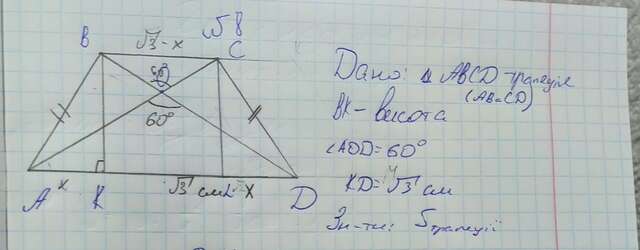 №8
B
√3 - x
C
60°
60°
A
x
K
√3 см
x
D
Дано: ABCD - трапеція
(AB=CD)
BK - высота
∠AOD = 60°
KD = √3 см
Зн-ти: Sтрапеції